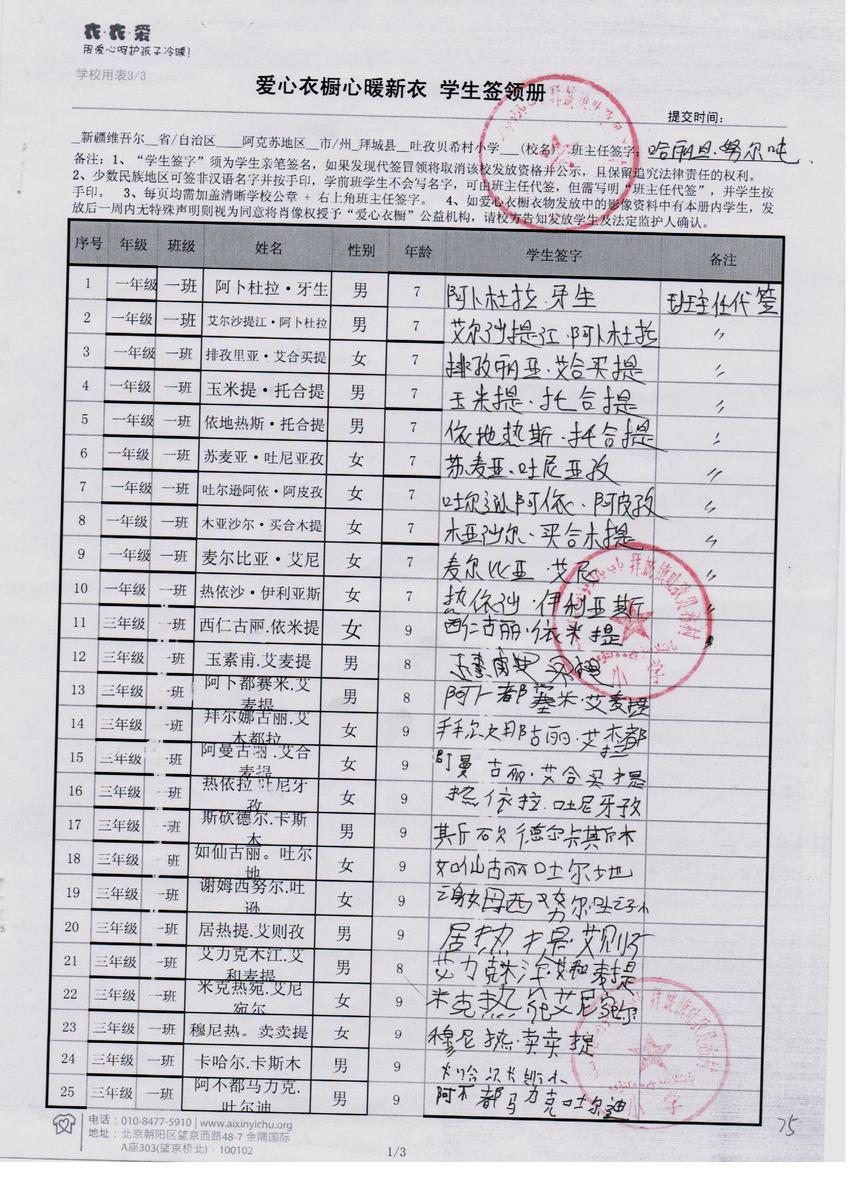 衣·衣·爱
用爱心呵护孩子冷暖!
学校用表3/3
爱心衣橱心暖新衣 学生签领册
提交时间:
_新疆维吾尔__省/自治区____阿克苏地区__市/州_拜城县__吐孜贝希村小学___(校名) 班主任签字: 哈丽旦.努尔吨
备注: 1、“学生签字”须为学生亲笔签名, 如果发现代签冒领将取消该校发放资格并公示, 且保留追究法律责任的权利。
2、少数民族地区可签非汉语名字并按手印, 学前班学生不会写名字, 可由班主任代签, 但需写明“班主任代签”, 并学生按
手印。 3、每页均需加盖清晰学校公章 + 右上角班主任签字。 4、如爱心衣橱衣物发放中的影像资料中有本册内学生, 发
放后一周内无特殊声明则视为同意将肖像权授予“爱心衣橱”公益机构, 请校方告知发放学生及法定监护人确认。
序号 年级 班级 姓名 性别 年龄 学生签字 备注
1 一年级 一班 阿卜杜拉·牙生 男 7 阿卜杜拉.牙生 班主任代签
2 一年级 一班 艾尔沙提江·阿卜杜拉 男 7 艾尔沙提江.阿卜杜拉 〃
3 一年级 一班 排孜里亚·艾合买提 女 7 排孜丽亚.艾合买提 〃
4 一年级 一班 玉米提·托合提 男 7 玉米提.托合提 〃
5 一年级 一班 依地热斯·托合提 男 7 依地热斯.托合提 〃
6 一年级 一班 苏麦亚·吐尼亚孜 女 7 苏麦亚.吐尼亚孜 〃
7 一年级 一班 吐尔逊阿依·阿皮孜 女 7 吐尔逊阿依.阿皮孜 〃
8 一年级 一班 木亚沙尔·买合木提 女 7 木亚沙尔.买合木提 〃
9 一年级 一班 麦尔比亚·艾尼 女 7 麦尔比亚.艾尼 〃
10 一年级 一班 热依沙·伊利亚斯 女 7 热依沙.伊利亚斯 〃
11 三年级 一班 西仁古丽.依米提 女 9 西仁古丽.依米提
12 三年级 一班 玉素甫.艾麦提 男 8
13 三年级 一班 阿卜都赛米.艾麦提 男 8 阿卜都塞米.艾麦提
14 三年级 一班 拜尔娜古丽.艾木都拉 女 9
15 三年级 一班 阿曼古丽.艾合麦提 女 9 阿曼古丽.艾合买提
16 三年级 一班 热依拉.吐尼牙孜 女 9 热依拉.吐尼牙孜
17 三年级 一班 斯砍德尔.卡斯木 男 9
18 三年级 一班 如仙古丽。吐尔地 女 9 如仙古丽吐尔地
19 三年级 一班 谢姆西努尔.吐逊 女 9
20 三年级 一班 居热提.艾则孜 男 9 居热提.艾则孜
21 三年级 一班 艾力克木江.艾和麦提 男 8
22 三年级 一班 米克热宛.艾尼宛尔 女 9
23 三年级 一班 穆尼热。卖卖提 女 9 穆尼热.卖卖提
24 三年级 一班 卡哈尔.卡斯木 男 9
25 三年级 一班 阿不都马力克.吐尔迪 男 9 阿不都马力克吐尔迪
电话: 010-8477-5910 | www.aixinyichu.org
地址: 北京朝阳区望京西路48-7 金隅国际
A座303(望京桥北) · 100102
1/3